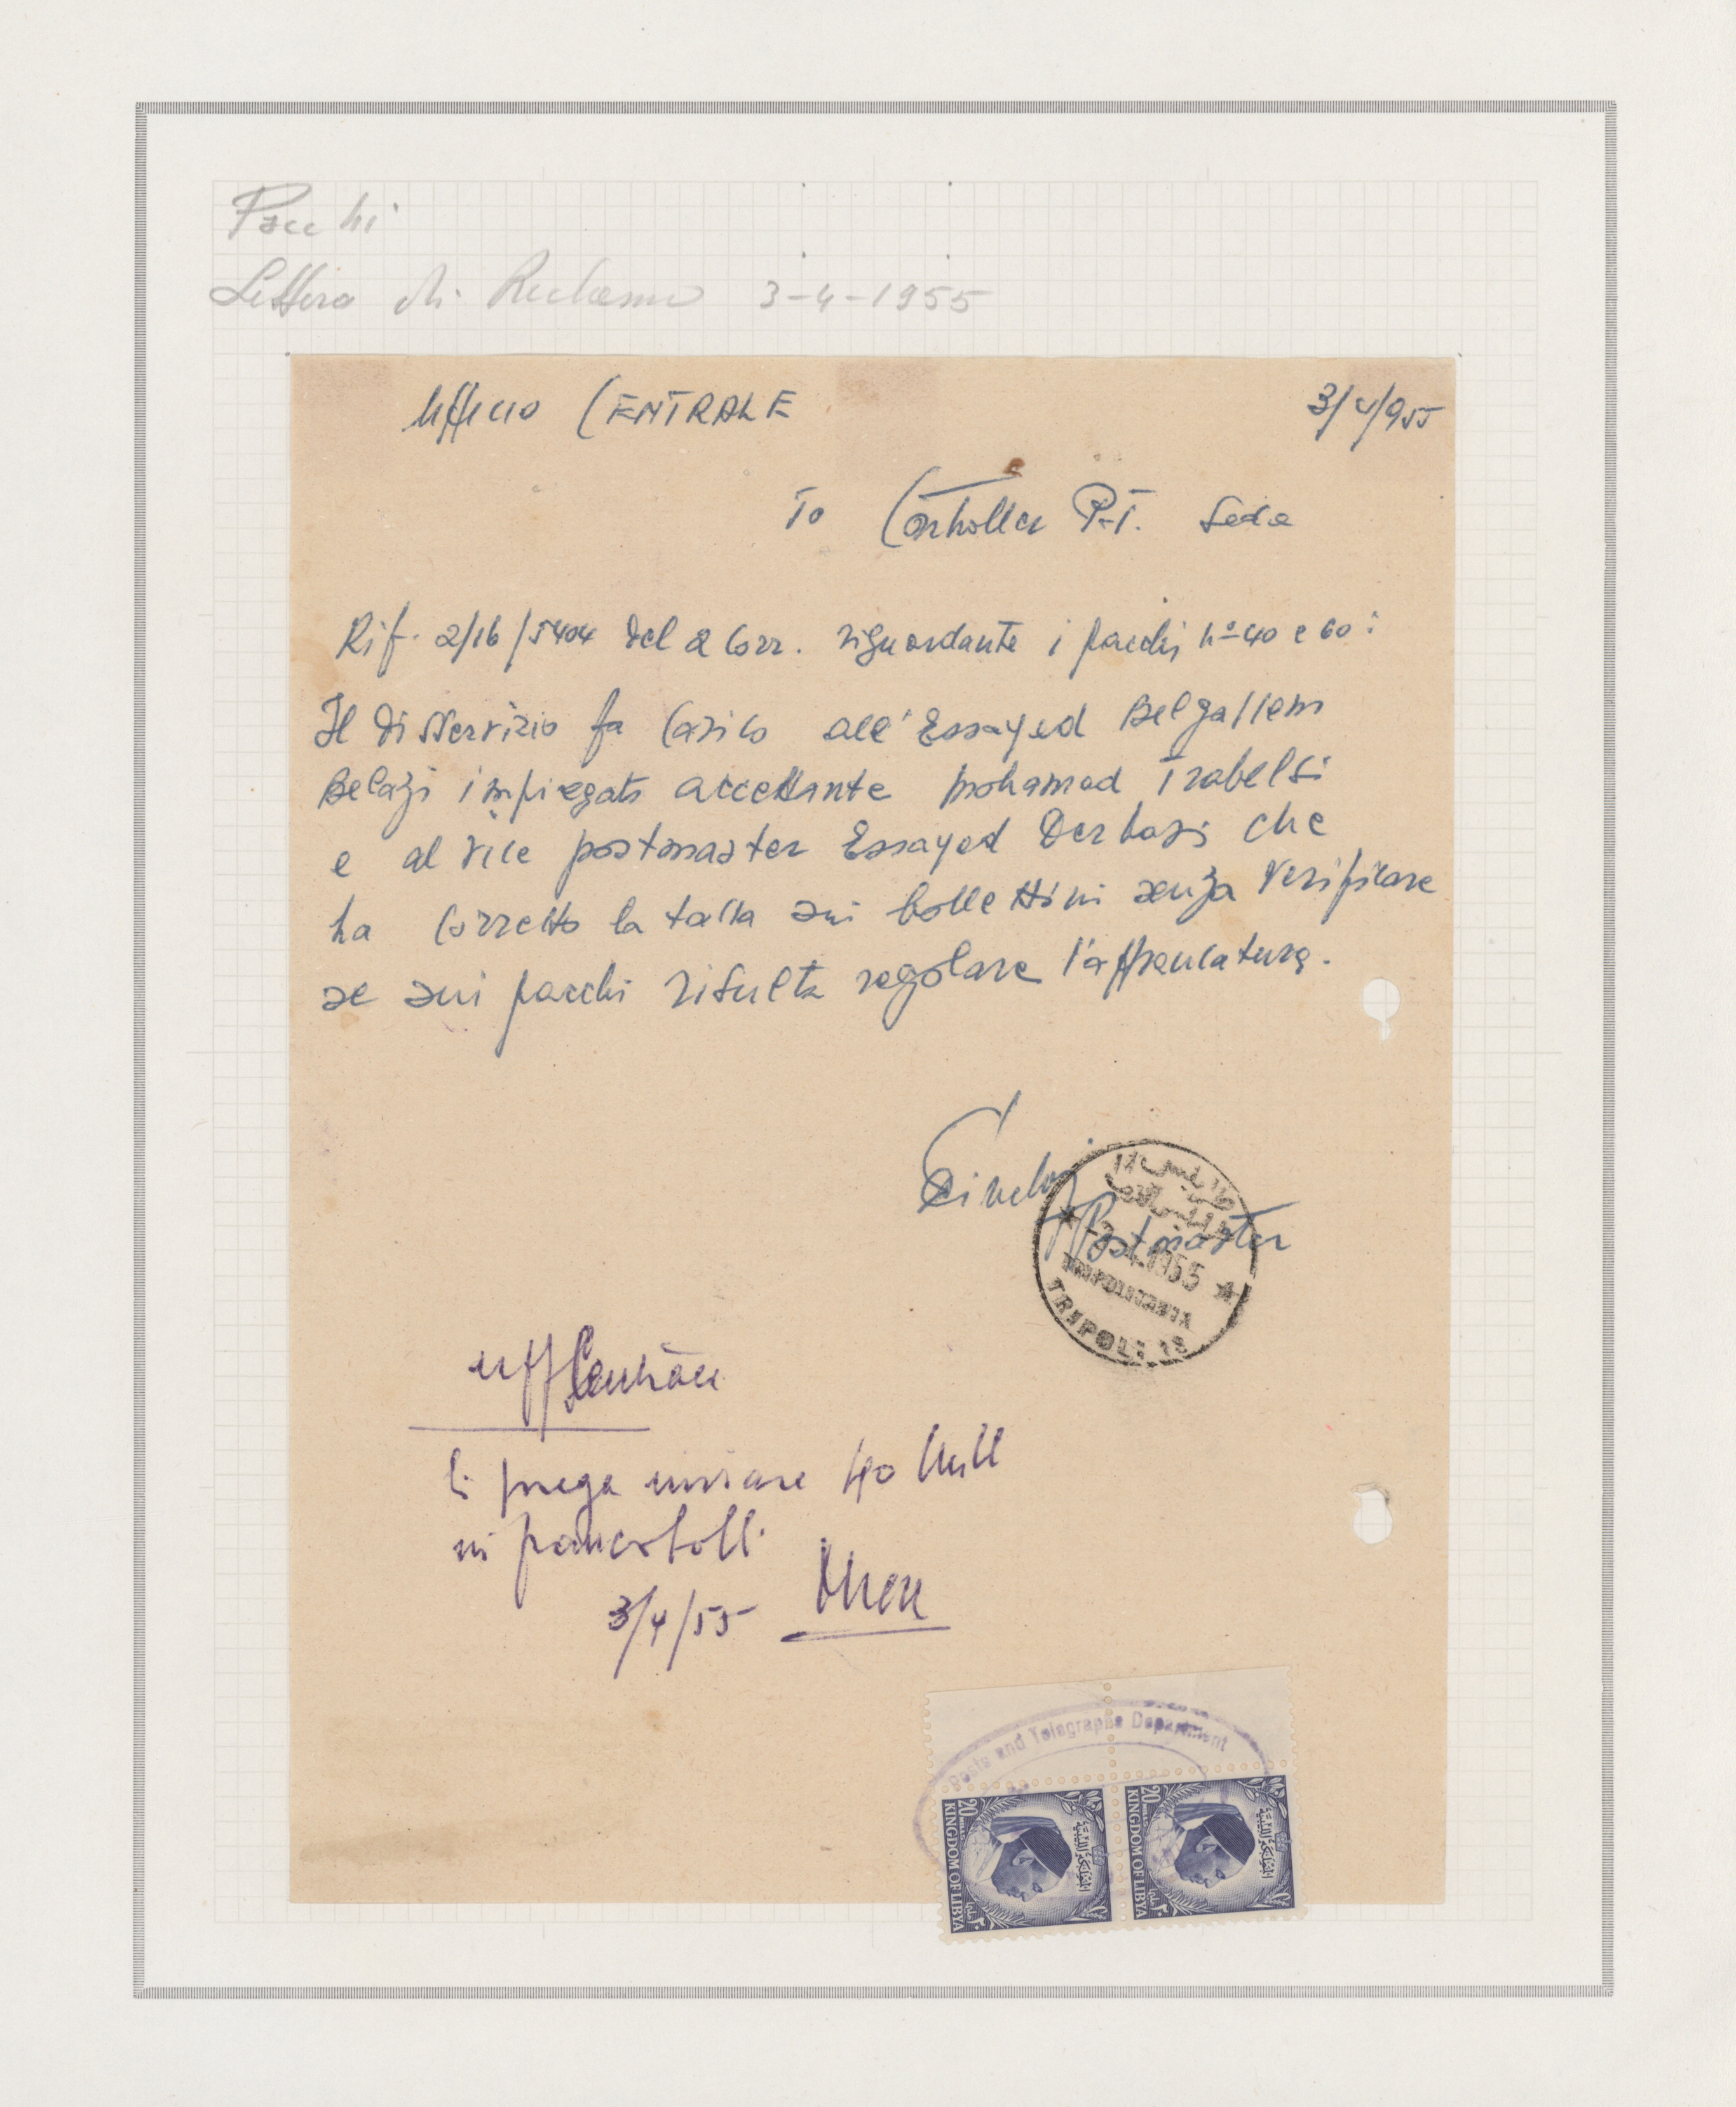 Pacchi
Lettera di Reclamo 3-4-1955
Ufficio CENTRALE 3/4/955
To Controller P.T. Sede
Rif. 2/16/5404 del 2 Corr. riguardante i pacchi n° 40 e 60:
Il disservizio fa carico all'Essayed Belgassem
Belazi impiegato accettante Mohamed Trabelsi
e al vice postmaster Essayed Derbasi che
ha corretto la tassa sui bollettini senza verificare
se sui pacchi risulta regolare l'affrancatura.
Postmaster
1955
TRIPOLITANIA
TRIPOLI
Uff Centrale
Si prega inviare 40 Mill
in francobolli
3/4/55
Posts and Telegraphs Department
20 MILLS
KINGDOM OF LIBYA
المملكة الليبية
٢٠
20 MILLS
KINGDOM OF LIBYA
المملكة الليبية
٢٠